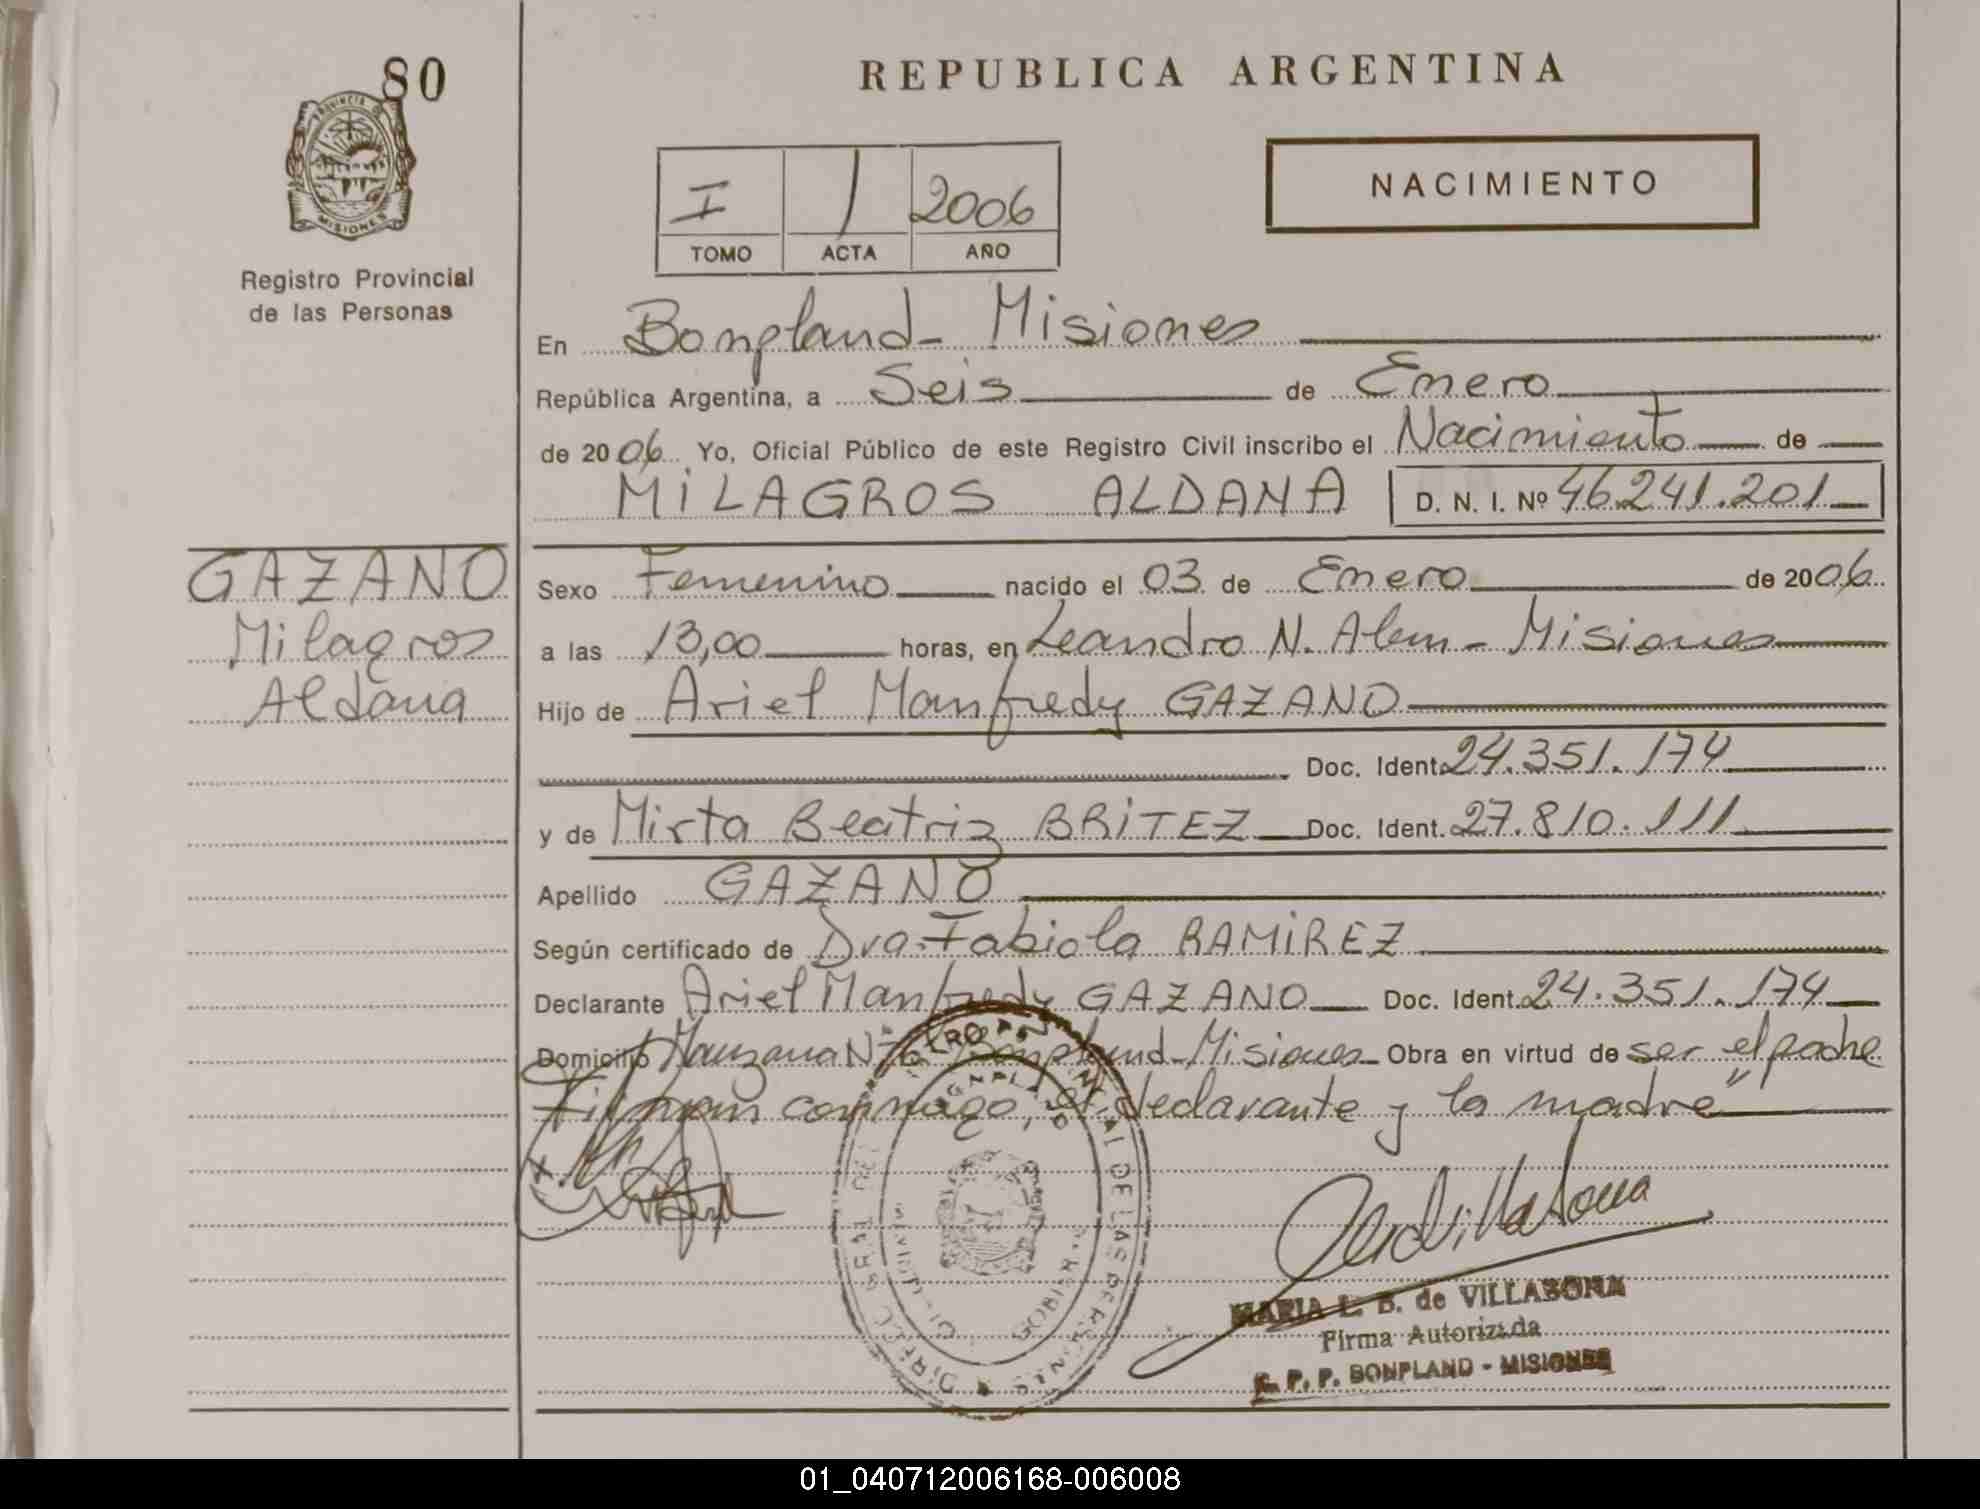 80
REPUBLICA ARGENTINA
PROVINCIA DE
MISIONES
Registro Provincial
de las Personas
NACIMIENTO
I 1 2006
TOMO ACTA AÑO
En Bonpland - Misiones
República Argentina, a Seis de Enero
de 2006 Yo, Oficial Público de este Registro Civil inscribo el Nacimiento de
MILAGROS ALDANA D. N. I. Nº 46.241.201
GAZANO
Milagros
Aldana
Sexo Femenino nacido el 03 de Enero de 2006
a las 13,00 horas, en Leandro N. Alem - Misiones
Hijo de Ariel Manfredy GAZANO
Doc. Ident. 24.351.174
y de Mirta Beatriz BRITEZ Doc. Ident. 27.810.111
Apellido GAZANO
Según certificado de Dra. Fabiola RAMIREZ
Declarante Ariel Manfredy GAZANO Doc. Ident. 24.351.174
Domicilio Manzana Nº Bonpland - Misiones Obra en virtud de ser el padre
Firman conmigo, el declarante y la madre"
BONPLAND
DE LAS PERSONAS
MARIA L. B. de VILLASONA
Firma Autorizada
R. P. P. BONPLAND - MISIONES
01_040712006168-006008